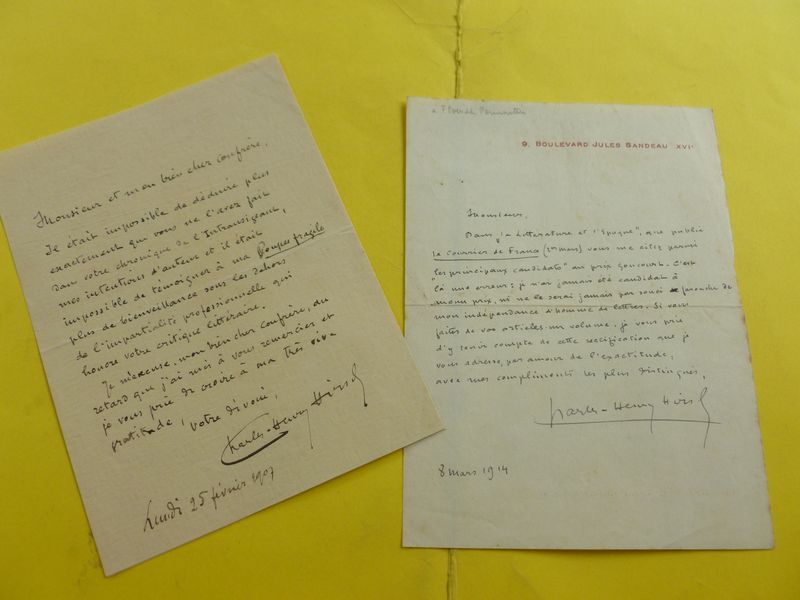 Monsieur et mon bien cher confrère,
Il était impossible de déduire plus
exactement que vous ne l'avez fait
dans votre chronique de l'Intransigeant,
mes intentions d'auteur et il était
impossible de témoigner à ma Poupée fragile
plus de bienveillance sous les dehors
de l'impartialité professionnelle qui
honore votre critique littéraire.
Je m'excuse, mon bien cher confrère, du
retard que j'ai mis à vous remercier et
je vous prie de croire à ma très vive
gratitude,
votre dévoué,
Charles-Henry Hirsch
Lundi 25 février 1907
à
9, BOULEVARD JULES SANDEAU XVIe
Monsieur,
Dans "la Littérature et l'Epoque", que publie
le Courrier de France (1er mars) vous me citez parmi
"les principaux candidats" au prix goncourt. C'est
là une erreur: je n'ai jamais été candidat à
aucun prix, ni ne le serai jamais par souci de
mon indépendance d'homme de lettres. Si vous
faites de vos articles un volume, je vous prie
d'y tenir compte de cette rectification que je
vous adresse, par amour de l'exactitude,
avec mes compliments les plus distingués,
Charles-Henry Hirsch
8 mars 1914